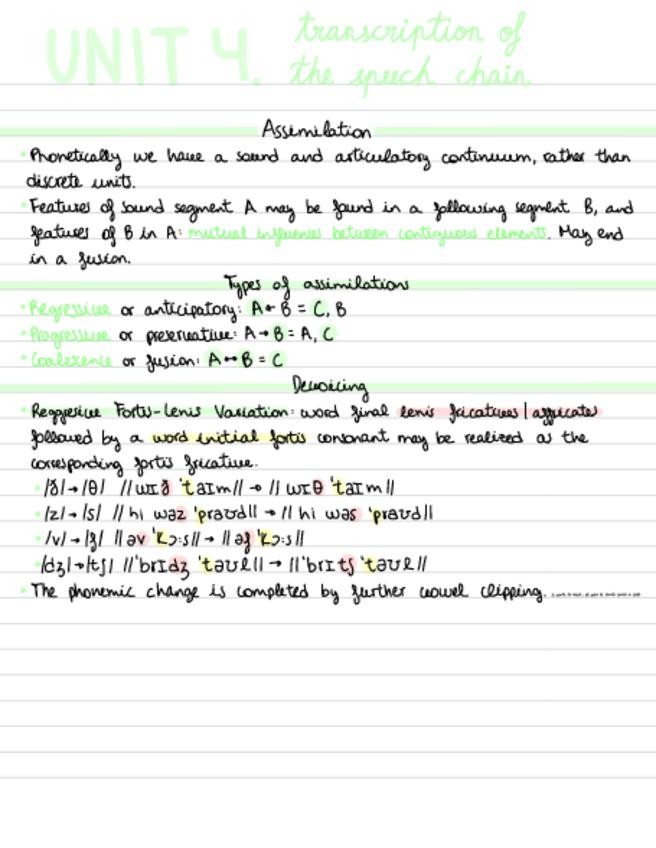 UNIT 4. transcription of
the speech chain.
Assimilation
• Phonetically we have a sound and articulatory continuum, rather than
discrete units.
• Features of sound segment A may be found in a following segment B, and
features of B in A: mutual influence between contiguous elements. May end
in a fusion.
Types of assimilations
• Regressive or anticipatory: A ← B = C, B
• Progressive or preservative: A → B = A, C
• Coalexence or fusion: A ↔ B = C
Devoicing
• Reggresive Fortis-Lenis Variation: word final lenis fricatives | affricates
followed by a word initial fortis consonant may be realized as the
corresponding fortis fricative.
• /ð/→/θ/ //wɪð ˈtaɪm// → // wɪθ ˈtaɪm //
• /z/→/s/ // hi wəz ˈpraʊd// → // hi wəs ˈpraʊd//
• /v/→/f/ // əv ˈkɔ:s// → // əf ˈkɔ:s//
• /dʒ/→/tʃ/ //ˈbrɪdʒ ˈtəʊl// → //ˈbrɪtʃ ˈtəʊl//
• The phonemic change is completed by further vowel clipping.